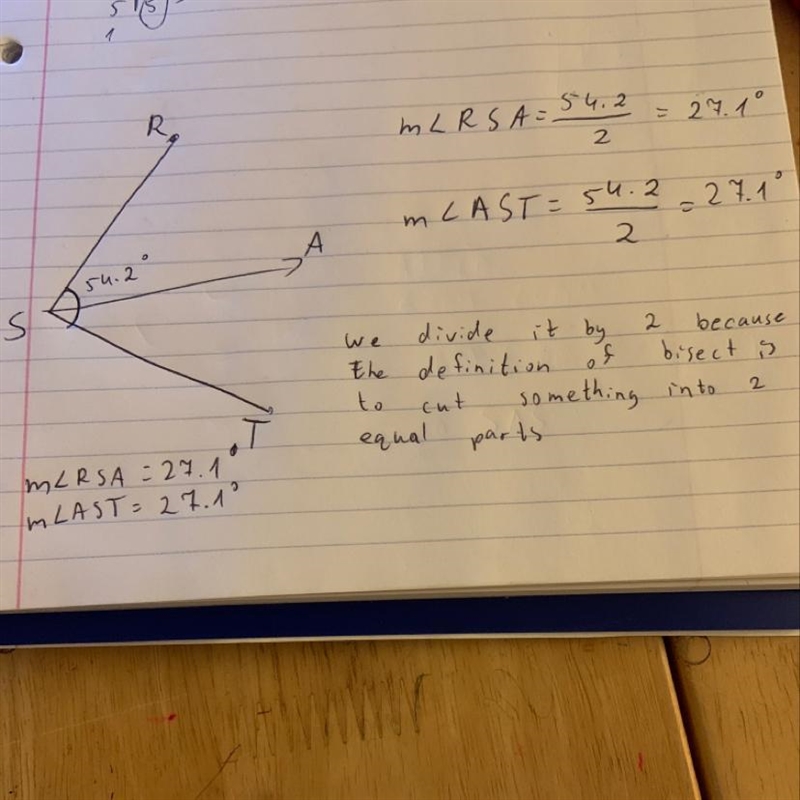 5 5
1
R
m∠RSA = 54.2 / 2 = 27.1°
m∠AST = 54.2 / 2 = 27.1°
A
54.2°
S
T
we divide it by 2 because
the definition of bisect is
to cut something into 2
equal parts
m∠RSA = 27.1°
m∠AST = 27.1°